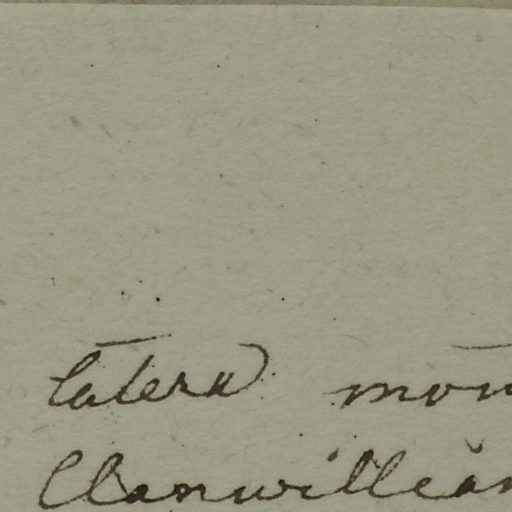 latera mon
Clanwilliam